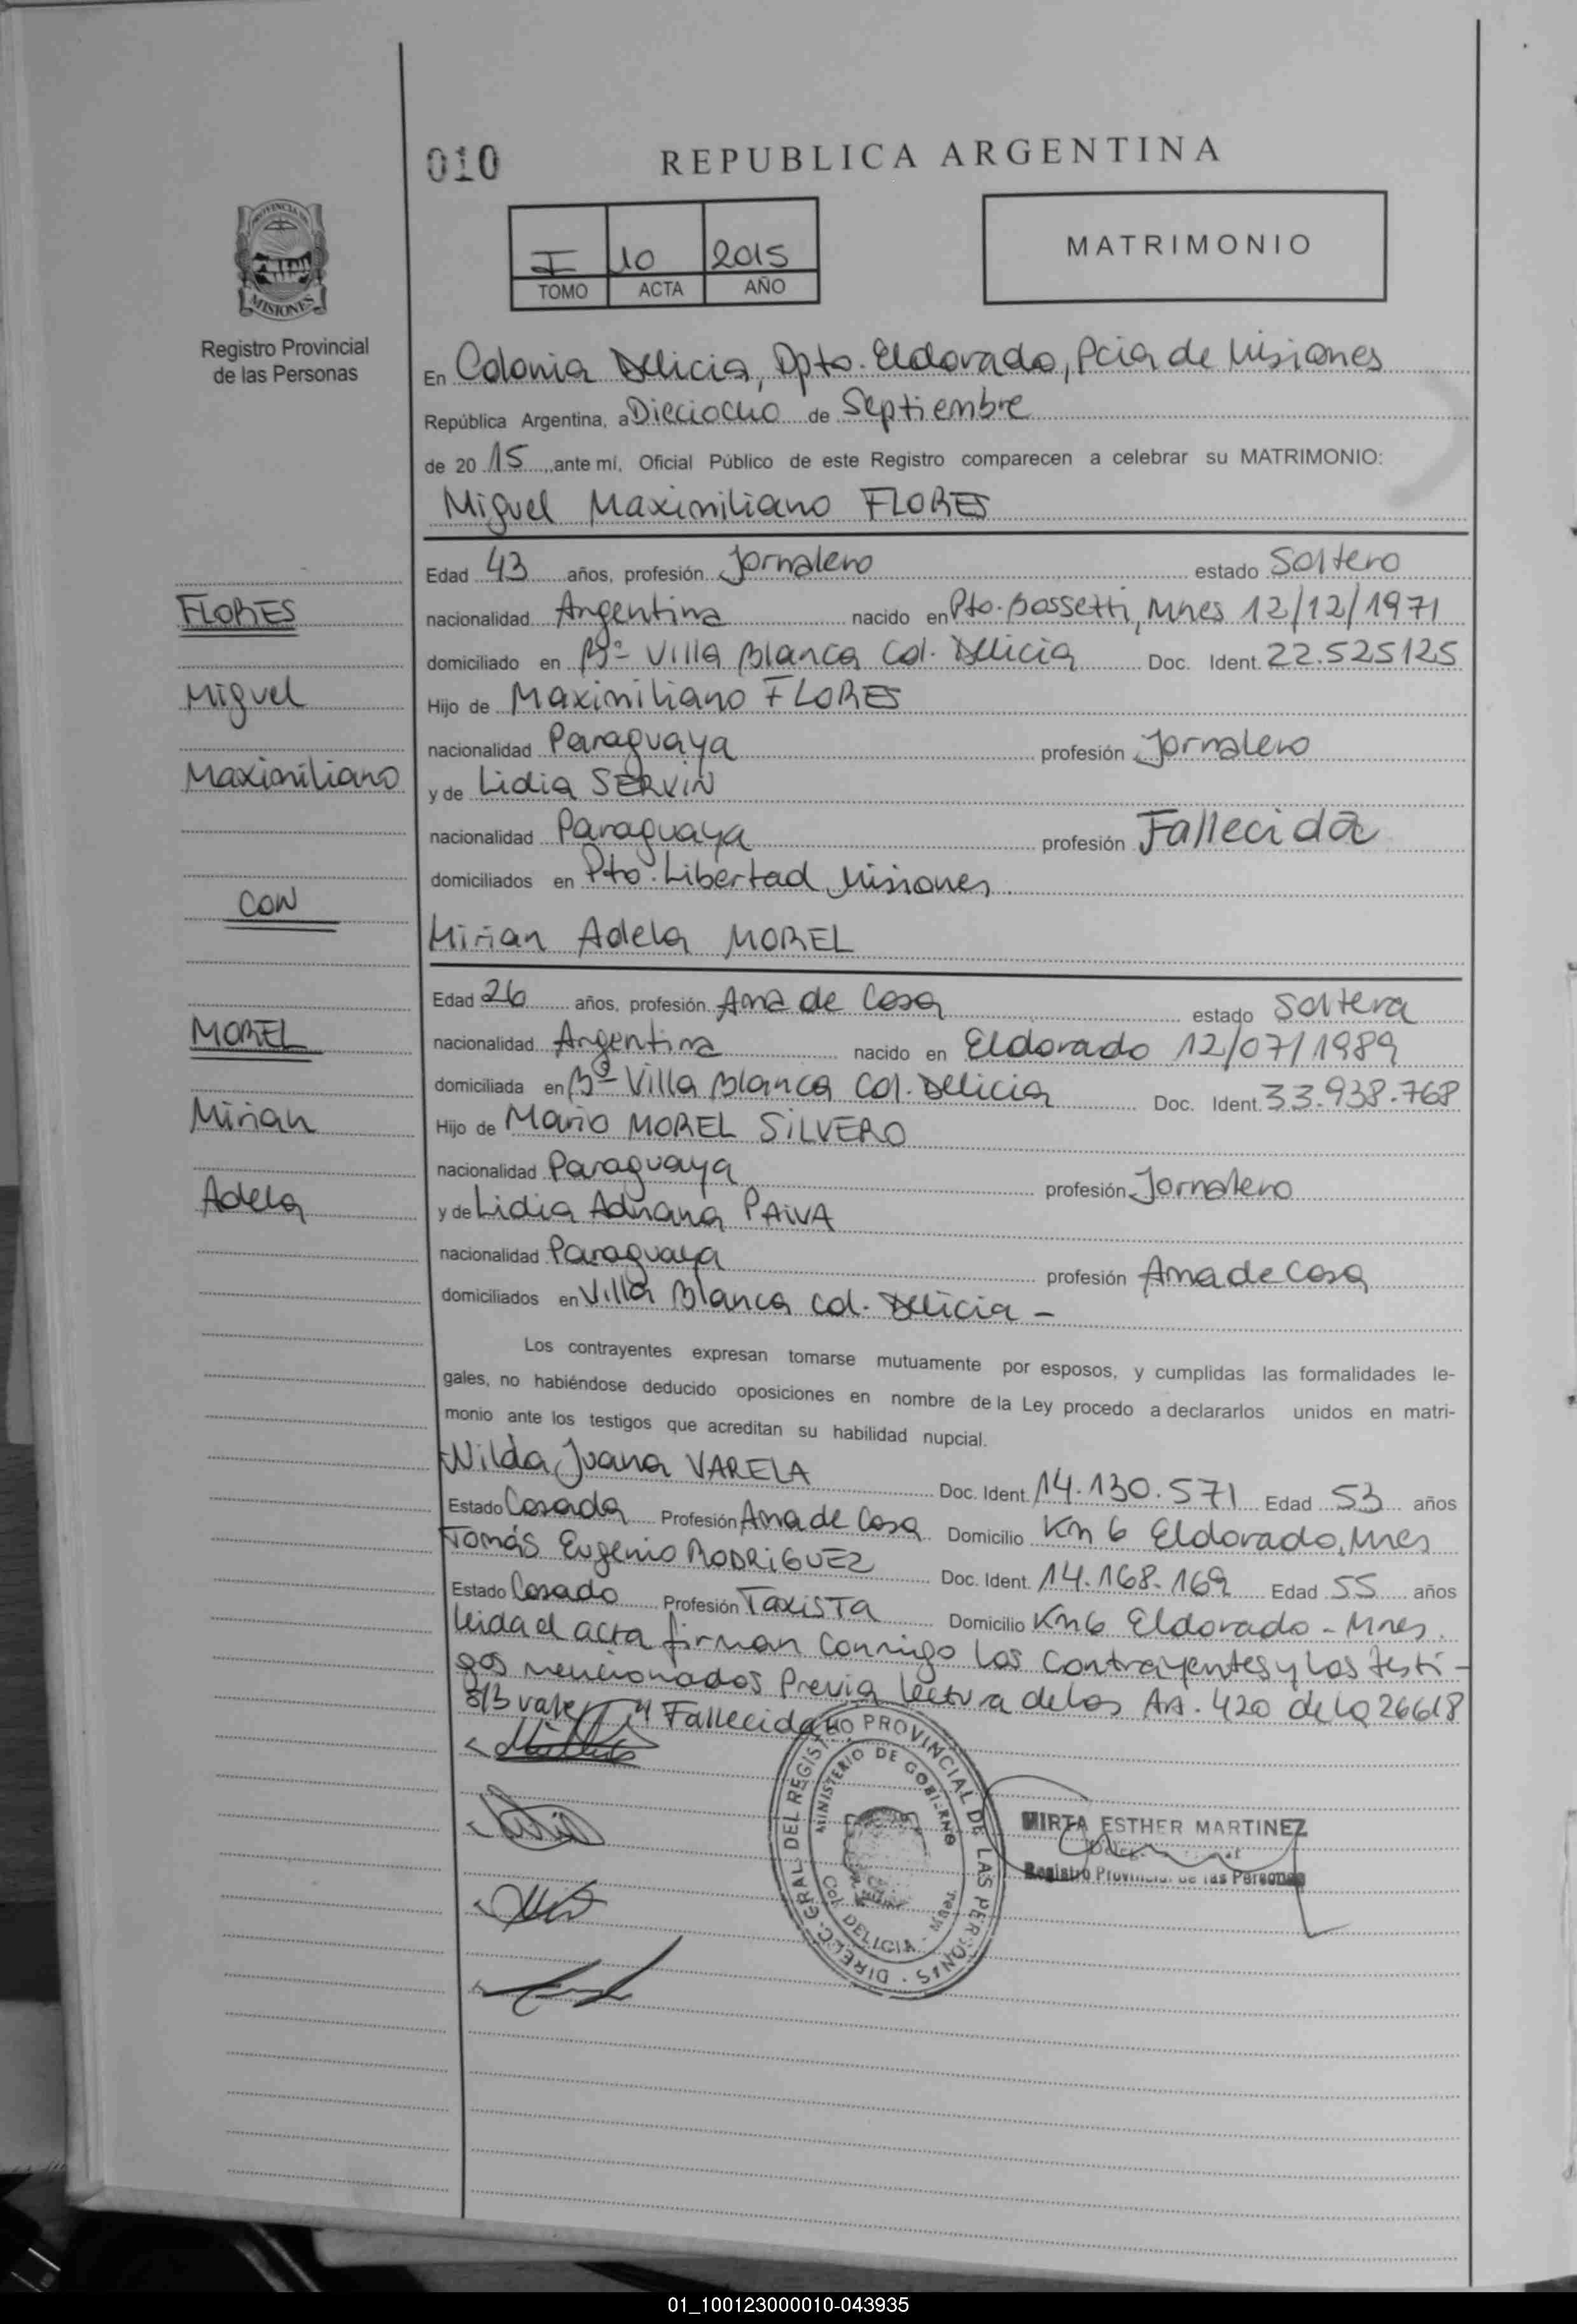 010
REPUBLICA ARGENTINA
PROVINCIA DE
MISIONES
Registro Provincial
de las Personas
I 10 2015
TOMO ACTA AÑO
MATRIMONIO
En Colonia Delicia, Dpto. Eldorado, Pcia de Misiones
República Argentina, a Dieciocho de Septiembre
de 20 15 , ante mí, Oficial Público de este Registro comparecen a celebrar su MATRIMONIO:
Miguel Maximiliano FLORES
Edad 43 años, profesión Jornalero estado Soltero
FLORES
nacionalidad Argentina nacido en Pto. Bossetti, Mnes 12/12/1971
domiciliado en Bº Villa Blanca Col. Delicia Doc. Ident. 22.525125
Miguel
Hijo de Maximiliano FLORES
nacionalidad Paraguaya profesión Jornalero
Maximiliano
y de Lidia SERVIN
nacionalidad Paraguaya profesión Fallecida
domiciliados en Pto. Libertad Misiones
CON
Mirian Adela MOREL
Edad 26 años, profesión Ama de Casa estado Soltera
MOREL
nacionalidad Argentina nacido en Eldorado 12/07/1989
domiciliada en Bº Villa Blanca Col. Delicia Doc. Ident. 33.938.768
Mirian
Hijo de Mario MOREL SILVERO
nacionalidad Paraguaya profesión Jornalero
Adela
y de Lidia Adriana PAIVA
nacionalidad Paraguaya profesión Ama de Casa
domiciliados en Villa Blanca Col. Delicia -
Los contrayentes expresan tomarse mutuamente por esposos, y cumplidas las formalidades le-
gales, no habiéndose deducido oposiciones en nombre de la Ley procedo a declararlos unidos en matri-
monio ante los testigos que acreditan su habilidad nupcial.
Nilda Juana VARELA Doc. Ident. 14.130.571 Edad 53 años
Estado Casada Profesión Ama de Casa Domicilio Km 6 Eldorado, Mnes
Tomás Eugenio RODRIGUEZ Doc. Ident. 14.168.169 Edad 55 años
Estado Casado Profesión Taxista Domicilio Km 6 Eldorado - Mnes.
leida el acta firman conmigo los contrayentes y los testi-
gos mencionados Previa lectura de los Art. 420 de la 26618
S/B vale Fallecida
DIRECC. GRAL. DEL REGISTRO PROVINCIAL DE LAS PERSONAS
MINISTERIO DE GOBIERNO
Col. DELICIA - Mnes.
MIRTA ESTHER MARTINEZ
Registro Provincial de las Personas
01_100123000010-043935